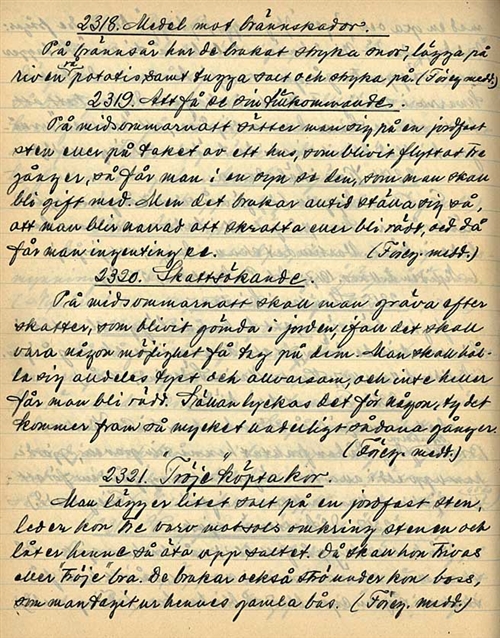 2318. Medel mot brännskador.
På brännsår hur de brukat stryka snor, lägga på
riven rå potatis samt tugga salt och stryka på. (Föreg. medd.)
2319. Att få se sin tillkommande.
På midsommarnatt sätter man sig på en jordfast
sten eller på taket av ett hus, som blivit flyttat tre
gånger, så får man i en syn se den, som man skall
bli gift med. Men det brukar alltid ställa sig så,
att man blir narrad att skratta eller bli rädd, och då
får man ingenting se. (Föreg. medd.)
2320. Skattsökande.
På midsommarnatt skall man gräva efter
skatter, som blivit gömda i jorden, ifall det skall
vara någon möjlighet få tag på dem. Man skall hål-
la sig alldeles tyst och allvarsam, och inte heller
får man bli rädd. Sällan lyckas det för någon, ty det
kommer fram så mycket underligt sådana gånger.
(Föreg. medd.)
2321. "Tröje" köpta kor.
Man lägger litet salt på en jordfast sten,
leder kon tre varv motsols omkring stenen och
låter henne så äta upp saltet. Då skall hon trivas
eller "tröje" bra. De brukar också strö under kon boss,
som man tagit ur hennes gamla bås. (Föreg. medd.)